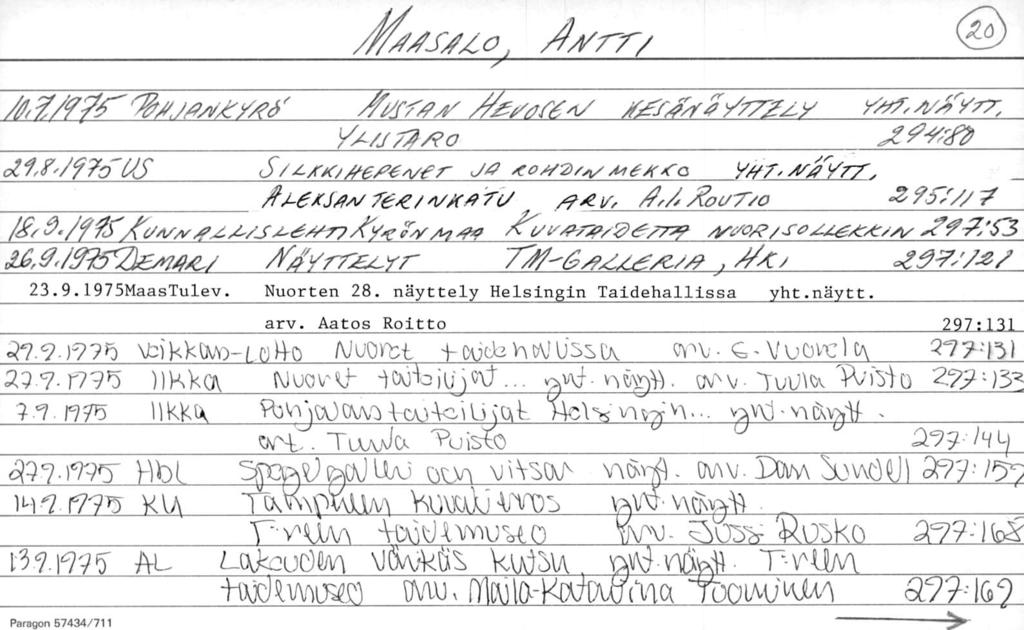 MAASALO, ANTTI 20
10.7.1975 POHJANKYRÖ MUSTAN HEVOSEN KESÄNÄYTTELY YHT.NÄYTT.
YLISTARO 294:80
29.8.1975 US SILKKIHEPENET JA ROHDINMEKKO YHT.NÄYTT.
ALEKSANTERINKATU ARV. A.I. ROUTIO 295:117
18.9.1975 KUNNALLISLEHTI KYRÖNMAA KUVATAIDETTA NUORISOLLEKKIN 297:53
26.9.1975 DEMARI NÄYTTELYT TM-GALLERIA, HKI 297:121
23.9.1975MaasTulev. Nuorten 28. näyttely Helsingin Taidehallissa yht.näytt.
arv. Aatos Roitto 297:131
27.9.1975 Veikkaus-Lotto Nuoret taidehallissa arv. E. Vuorela 297:131
27.9.1975 Ilkka Nuoret taiteilijat... yht. näytt. arv. Tuula Puisto 297:133
7.9.1975 Ilkka Pohjalaistaiteilijat Helsingin... yht.näytt.
art. Tuula Puisto 297:144
27.9.1975 Hbl Spegelgalleri och vitsar näytt. arv. Dan Sundell 297:157
14.9.1975 KU Tampereen kuvakierros yht.näytt.
T:reen taidemuseo arv. Jussi Rusko 297:168
13.9.1975 AL Lakeuden väkikäs kutsu yht.näytt. T:reen
taidemuseo arv. Maila-Katariina Tuominen 297:169
Paragon 57434/711